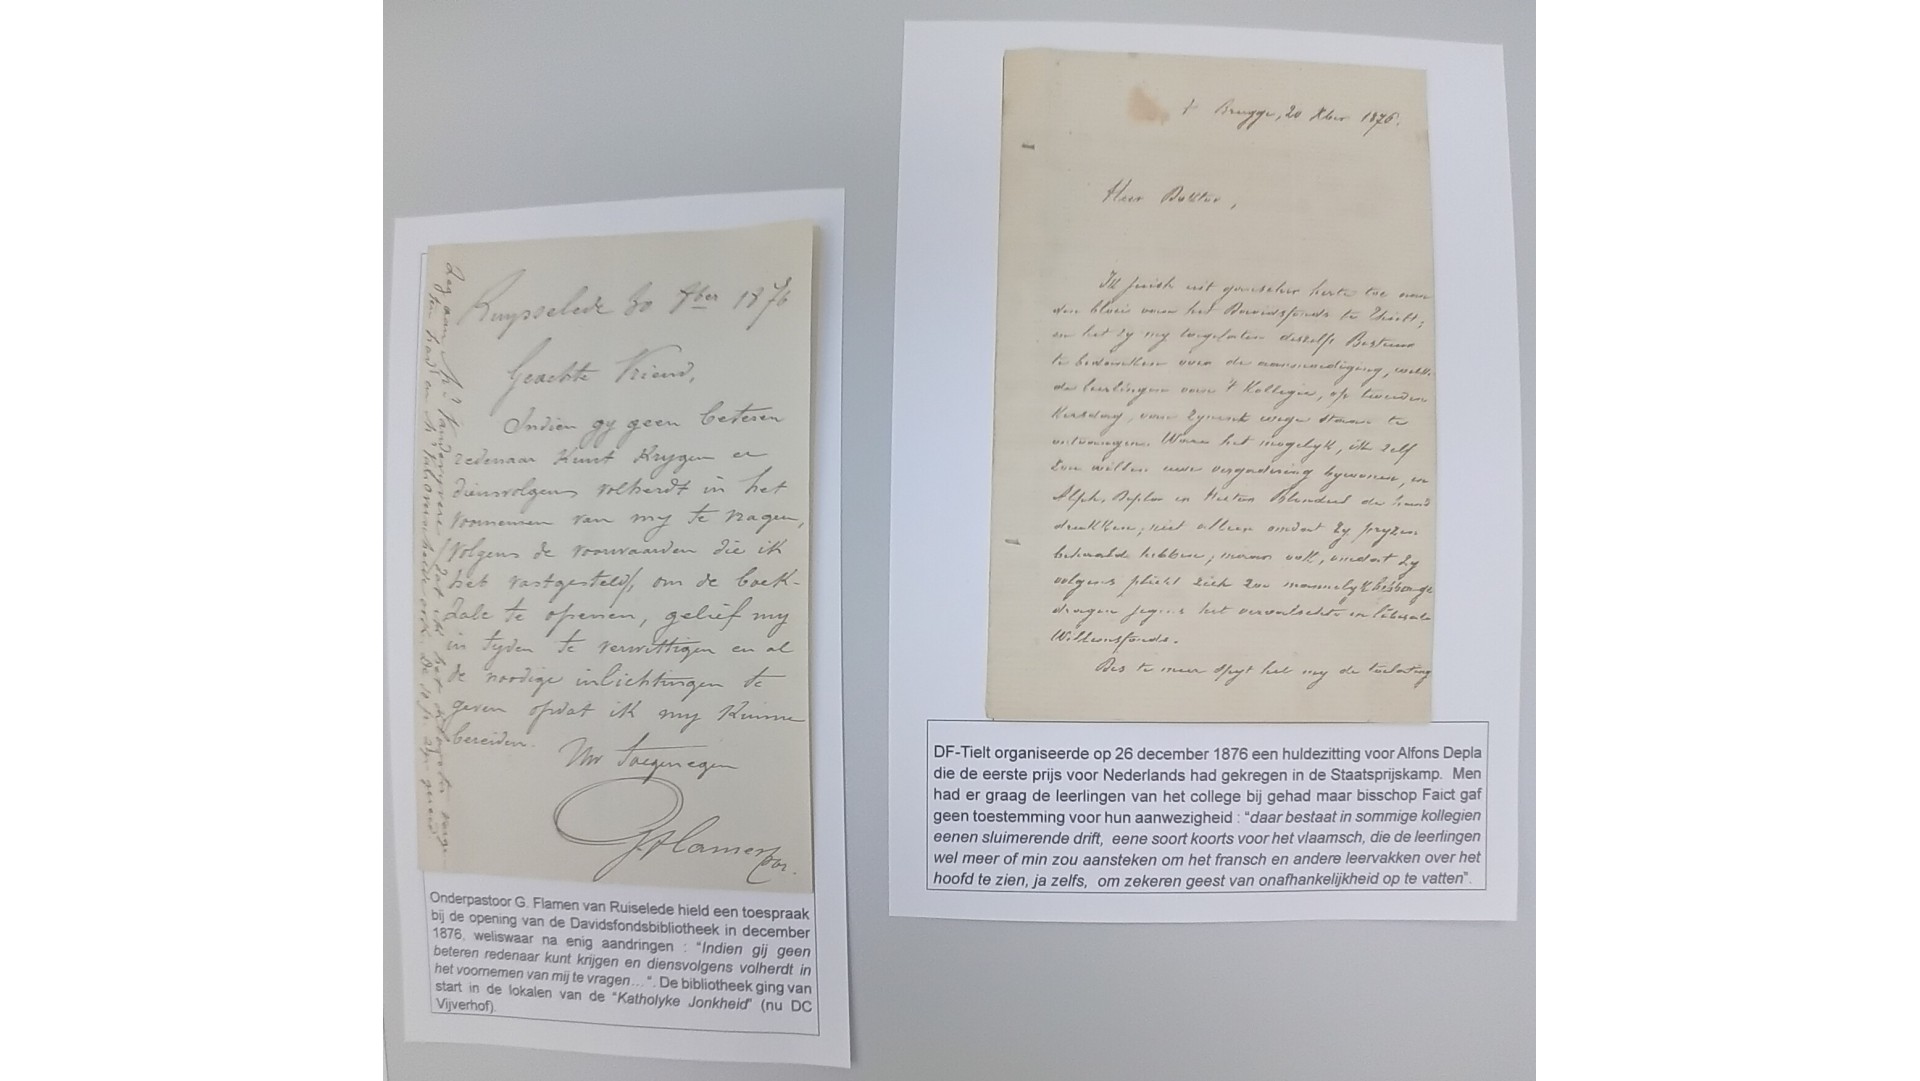 Ruysselede 30 9ber 1876
Geachte Vriend,
Indien gy geen beteren
redenaar kunt krygen en
diensvolgens volherdt in het
voornemen van my te vragen,
(volgens de voorwaarden die ik
heb vastgesteld), om de boek-
zale te openen, gelief my
in tyden te verwittigen en al
de noodige inlichtingen te
geven opdat ik my kunne
bereiden.
Uw toegenegen
G. Flamen
Onderpastoor G. Flamen van Ruiselede hield een toespraak
bij de opening van de Davidsfondsbibliotheek in december
1876, weliswaar na enig aandringen : “Indien gij geen
beteren redenaar kunt krijgen en diensvolgens volherdt in
het voornemen van mij te vragen…“. De bibliotheek ging van
start in de lokalen van de “Katholyke Jonkheid” (nu DC
Vijverhof).
Brugge, 20 Xber 1876.
Heer Doktor,
Ik juich uit ganscher herte toe aan
den bloei van het Davidsfonds te Thielt;
en het zy my toegelaten deszelfs Bestuur
te bedanken over de aanmoediging, welke
de leerlingen van 't Kollegie, op tweeden
Kersdag, van zynent wege staan te
ontvangen. Ware het mogelyk, ik zelf
zou willen uwe vergadering bywonen, en
Alph. Depla en Hector Blondeel de hand
drukken; niet alleen omdat zy pryzen
behaald hebben; maar ook, omdat zy
volgens plicht zich zoo mannelyk
dragen jegens het verwaeschte en liberale
Willemsfonds.
Des te meer spyt het my de toelating
DF-Tielt organiseerde op 26 december 1876 een huldezitting voor Alfons Depla
die de eerste prijs voor Nederlands had gekregen in de Staatsprijskamp. Men
had er graag de leerlingen van het college bij gehad maar bisschop Faict gaf
geen toestemming voor hun aanwezigheid : “daar bestaat in sommige kollegien
eenen sluimerende drift, eene soort koorts voor het vlaamsch, die de leerlingen
wel meer of min zou aansteken om het fransch en andere leervakken over het
hoofd te zien, ja zelfs, om zekeren geest van onafhankelijkheid op te vatten”.